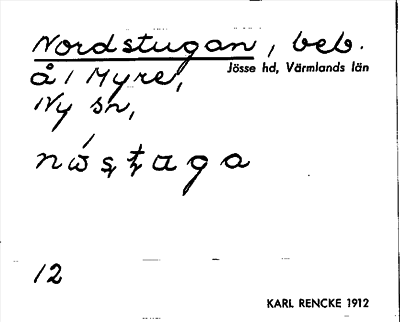 Nordstugan, beb.
Jösse hd, Värmlands län
å 1 Myre,
Ny sn,
nώştaga
12
KARL RENCKE 1912